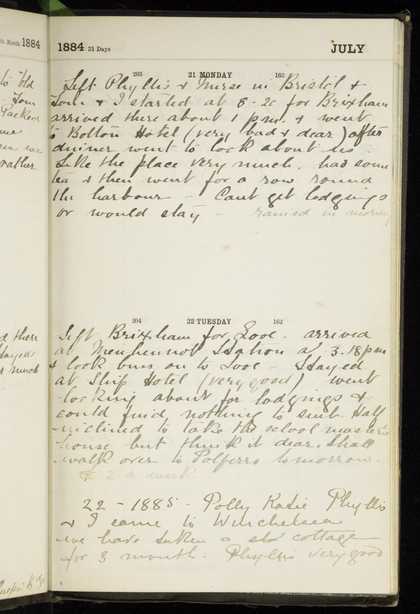 th Month 1884
1884 31 Days JULY
203 21 MONDAY 163
Left Phyllis & Nurse in Bristol &
Tom & I started at 8.20 for Brixham
arrived there about 1 p.m. & went
to Bolton Hotel (very bad & dear) after
dinner went to look about us
Like the place very much. had some
tea & then went for a row round
the harbour - Cant get lodgings
or would stay - rained in morning
204 22 TUESDAY 162
Left Brixham for Looe. arrived
at Menheniot Station at 3.18 pm
& took buss on to Looe - Stayed
at Ship Hotel (very good) went
looking about for lodgings &
could find nothing to suit. Half
inclined to take the school masters
house but think it dear. shall
walk over to Polperro tomorrow.
a week
22 - 1885 - Polly Katie Phyllis
& I came to Winchelsea
we have taken a cottage
for 3 month. Phyllis very good